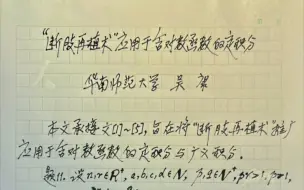 “断肢再植术”应用于含对数函数的定积分
华南师范大学 吴
本文承接文[1]~[5],旨在将“断肢再植术”推广
应用于含对数函数的定积分与广义积分。
设 λ,r∈R⁺, a,b,c,d∈N, β,q∈N⁺,